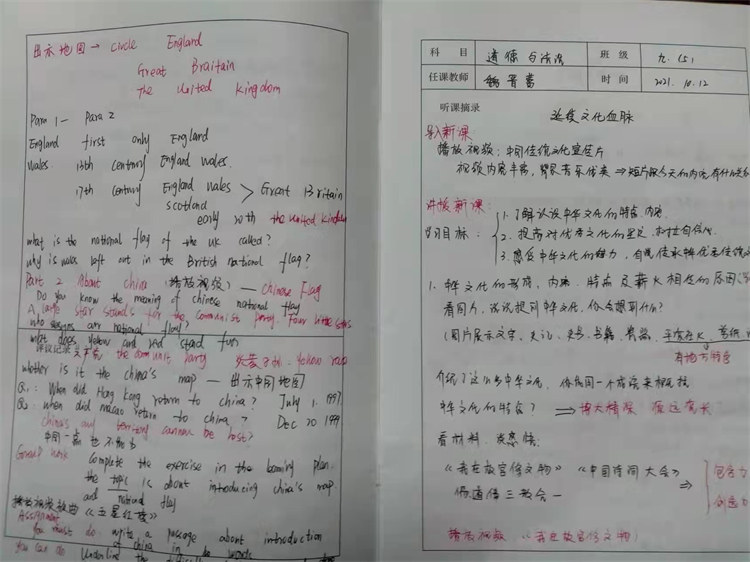 出示地图 → circle England
Great Braitain
The United Kingdom
Para 1 — Para 2
England first only England
Wales. 13th century England Wales.
17th century England Wales > Great Britain
Scotland
early 20th the United Kingdom
what is the national flag of the UK called?
why is wales left out in the British national flag?
Part 2 About china (播放视频) — Chinese Flag
Do you know the meaning of chinese national flag
A large star stands for the communist party. Four little stars
who designs our national flag?
what does yellow and red stand for
评议记录 the communist party yellow race
whether is it the china's map — 出示中国地图
Q1: When did Hong Kong return to china? July 1. 1997
Q2: when did macao return to china? Dec 20 1999
China's any territory cannot be lost?
中国一点也不能少
Group work complete the exercise in the learning plan.
the topic is about introducing china's map
and national flag
播放视频歌曲《五星红旗》
Assignment
You must do. write a passage about introduction
of china in words
You can do Underline the
科 目 道德与法治 班 级 九.(5)
任课教师 时 间 2021.10.12
听课摘录
延续文化血脉
导入新课
播放视频:中国传统文化宣传片
视频内容丰富,背景音乐优美 ⇒ 短片跟今天的内容有什么关
讲授新课:
目标: 1.了解认识中华文化的特点.内容.
2.提高对优秀文化的
3.感受中华文化的魅力,自觉传承
1.中华文化的形成,内容.特点及薪火相传的原因
看图片,说说提到中华文化,你会想到什么?
(图片展示文字,
有地方特色
介绍了这么多中华文化,你能用一个成语来概括
中华文化的特点? ⇒ 博大精深 源远流长
看材料.谈感悟:
《我在故宫修文物》《中国诗词大会》 ⇒ 包容力
儒道佛三教合一 创造力
播放视频《我在故宫修文物》